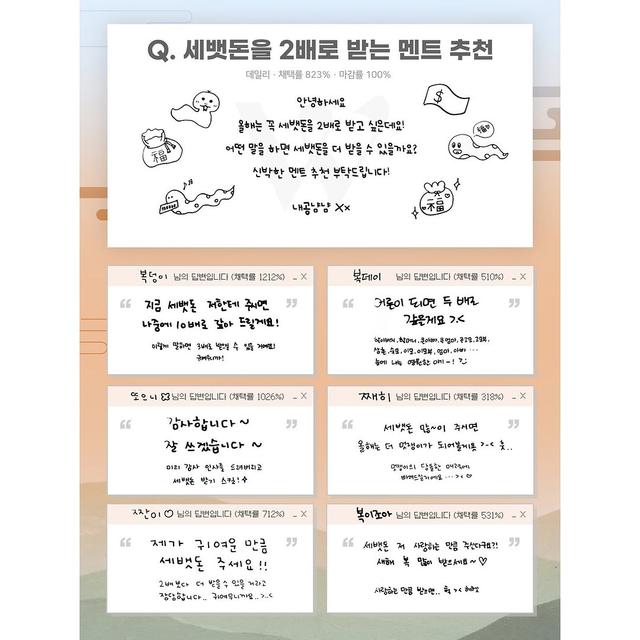 Q. 세뱃돈을 2배로 받는 멘트 추천
데일리 · 채택률 823% · 마감률 100%
안녕하세요
올해는 꼭 세뱃돈을 2배로 받고 싶은데요!
어떤 말을 하면 세뱃돈을 더 받을 수 있을까요?
신박한 멘트 추천 부탁드립니다!
내공냠냠 xx
$
福
福
복덩이 님의 답변입니다 (채택률 1212%)
지금 세뱃돈 저한테 주시면
나중에 10배로 갚아 드릴게요!
이렇게 말하면 3배로 받을 수 있을 거예요!
복데이 님의 답변입니다 (채택률 510%)
어른이 되면 두 배로
갚을게요 >.<
또으니 님의 답변입니다 (채택률 1026%)
감사합니다~
잘 쓰겠습니다~
미리 감사 인사를 드려버리고
세뱃돈 받기 스킬!
째히 님의 답변입니다 (채택률 318%)
세뱃돈 많~이 주시면
올해는 더 멋쟁이가 되어볼게욧 >.< 훗..
멋쟁이의 달콤한 매력에
짠이♡ 님의 답변입니다 (채택률 712%)
제가 귀여운 만큼
세뱃돈 주세요!!
2배보다 더 받을 수 있을 거라고
장담합니다.. 귀여우니까요..>.<
복이조아 님의 답변입니다 (채택률 531%)
세뱃돈 저 사랑하는 만큼 주신다구요?!
새해 복 많이 받으세요~♡